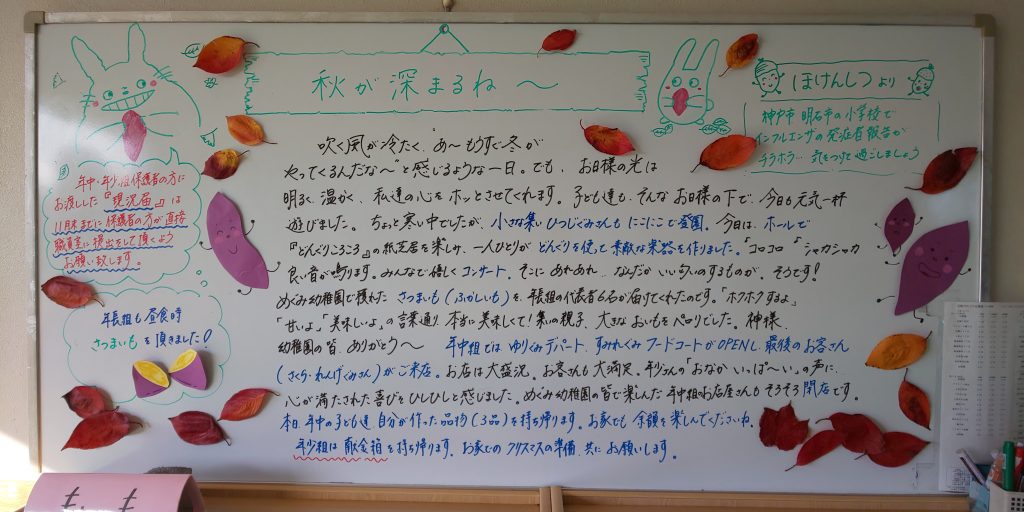 秋が深まるね～
ほけんしつより
神戸市 明石市の小学校で
インフルエンザの発症者報告が
チラホラ… 気をつけて過ごしましょう
年中・年少組保護者の方に
お渡しした『現況届』は
11月末までに保護者の方が直接
職員室に提出をして頂くよう
お願い致します。
年長組も昼食時
さつまいもを頂きました
吹く風が冷たく、"あ～もうすぐ冬が
やってくるんだな～"と感じるような一日。でも、お日様の光は
明るく、温かく、私達の心をホッとさせてくれます。子ども達も、そんなお日様の下で、今日も元気一杯
遊びました。ちょっと寒い中でしたが、小さな集いひつじぐみさんもにこにこで登園。今日は、ホールで
『どんぐりころころ』の紙芝居を楽しみ、一人ひとりがどんぐりを使って素敵な楽器を作りました。「コロコロ」「シャカシャカ
良い音が鳴ります。みんなで嬉しくコンサート。そこにあれあれ…なんだかいい匂いのするものが。そうです！
めぐみ幼稚園で穫れたさつまいも(ふかしいも)を、年長組の代表者6名が届けてくれたのです。「ホクホクするよ」
「甘いよ」「美味しいよ」の言葉通り 本当に美味しくて！集いの親子、大きなおいもをペロリでした。神様、
幼稚園の皆、ありがとう～ 年中組ではゆりぐみデパート、すみれぐみフードコートがOPENし、最後のお客さん
(さくら・れんげぐみさん)がご来店。お店は大盛況。お客さんも大満足。年少さんの「おなかいっぱ～い」の声に、
心が満たされた喜びをひしひしと感じました。めぐみ幼稚園の皆で楽しんだ年中組のお店屋さんもそろそろ閉店です。
本日、年中の子ども達、自分が作った品物(3品)を持ち帰ります。お家でも余韻を楽しんでくださいね。
年少組は献金箱を持ち帰ります。お家でのクリスマスの準備、共にお願いします。